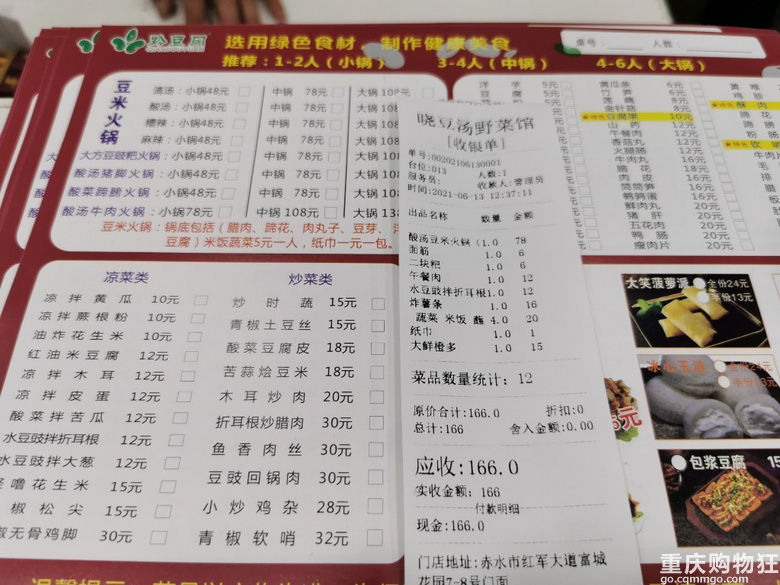 黔豆凤
选用绿色食材，制作健康美食
推荐：1-2人（小锅） 3-4人（中锅） 4-6人（大锅）
桌号： 人数：
豆米火锅
清汤：小锅48元 中锅 78元 大锅 108元
酸汤：小锅48元 中锅 78元 大锅 108
糟辣：小锅48元 中锅 78元 大锅 108
麻辣：小锅48元 中锅 78元 大锅 10
大方豆豉粑火锅：小锅48元 中锅 78元 大锅 10
酸汤猪脚火锅：小锅48元 中锅 78元 大锅 10
酸菜蹄膀火锅：小锅48元 中锅 78元 大锅 10
酸汤牛肉火锅：小锅78元 中锅 108元 大锅 138
豆米火锅：锅底包括（腊肉、蹄花、肉丸子、豆芽、
豆腐）米饭蔬菜5元一人，纸巾一元一包。
洋芋 5元
豆腐 5元
黄瓜条 6元
竹笋 6元
莲藕 8元
金针菇 8元
豆腐果 10元
山药 12元
午餐肉 12元
香菇丸 12元
火腿肠 12元
牛肉丸 16元
腊花 18元
肉皮 16元
筒筒笋 16元
鹌鹑蛋 16元
鲜肉丸 20元
猪肝 20元
五花肉 20元
鸭肠 20元
瘦肉片 20元
酥肉
蹄花
凉菜类
凉拌黄瓜 10元
凉拌蕨根粉 10元
油炸花生米 10元
红油米豆腐 12元
凉拌木耳 12元
凉拌皮蛋 12元
酸菜拌苦瓜 12元
水豆豉拌折耳根 12元
水豆豉拌大葱 12元
怪噜花生米 15元
椒松尖 15元
椒无骨鸡脚 30元
炒菜类
炒时蔬 15元
青椒土豆丝 15元
酸菜豆腐皮 18元
苦蒜烩豆米 18元
木耳炒肉 20元
折耳根炒腊肉 30元
鱼香肉丝 30元
豆豉回锅肉 30元
小炒鸡杂 28元
青椒软哨 32元
晓豆汤野菜馆
[收银单]
单号:00202106130001
台位:013 人数:1
服务员: 收款人:管理员
时间:2021-06-13 12:37:11
出品名称 数量 金额
酸汤豆米火锅（1.0 78
面筋 1.0 6
二块粑 1.0 6
午餐肉 1.0 12
水豆豉拌折耳根1.0 12
炸薯条 1.0 16
蔬菜 米饭 蘸 4.0 20
纸巾 1.0 1
大鲜橙多 1.0 15
菜品数量统计：12
原价合计:166.0 折扣:0
总计:166 舍入金额:0.00
应收:166.0
实收金额：166
付款明细
现金:166.0
门店地址:赤水市红军大道富城
花园7-8号门面
大笑菠萝派 全份24元
半份13元
冰心玉润
包浆豆腐 15
重庆购物狂
go.cqmmgo.com